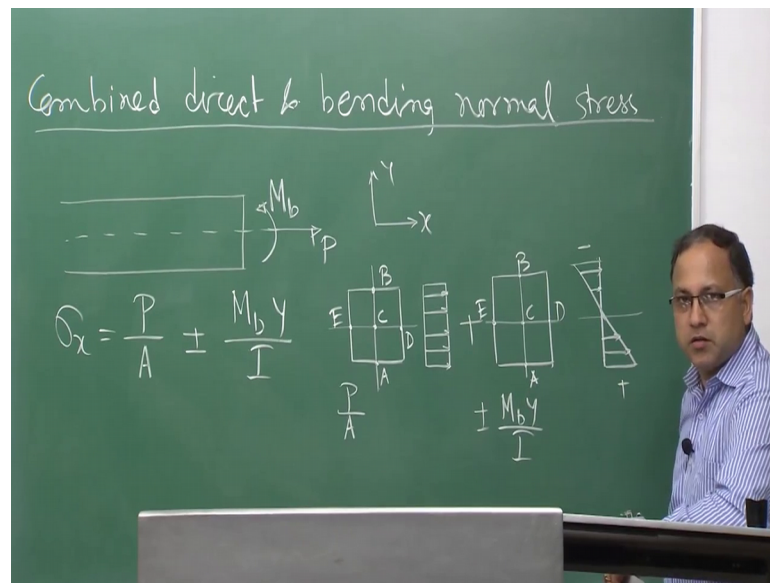 Combined direct & bending normal stress
M_b
P
Y
X
σ_x = P/A ± M_b Y/I
B
E C D
A
P/A
+
B
E C D
A
± M_b Y/I
−
+